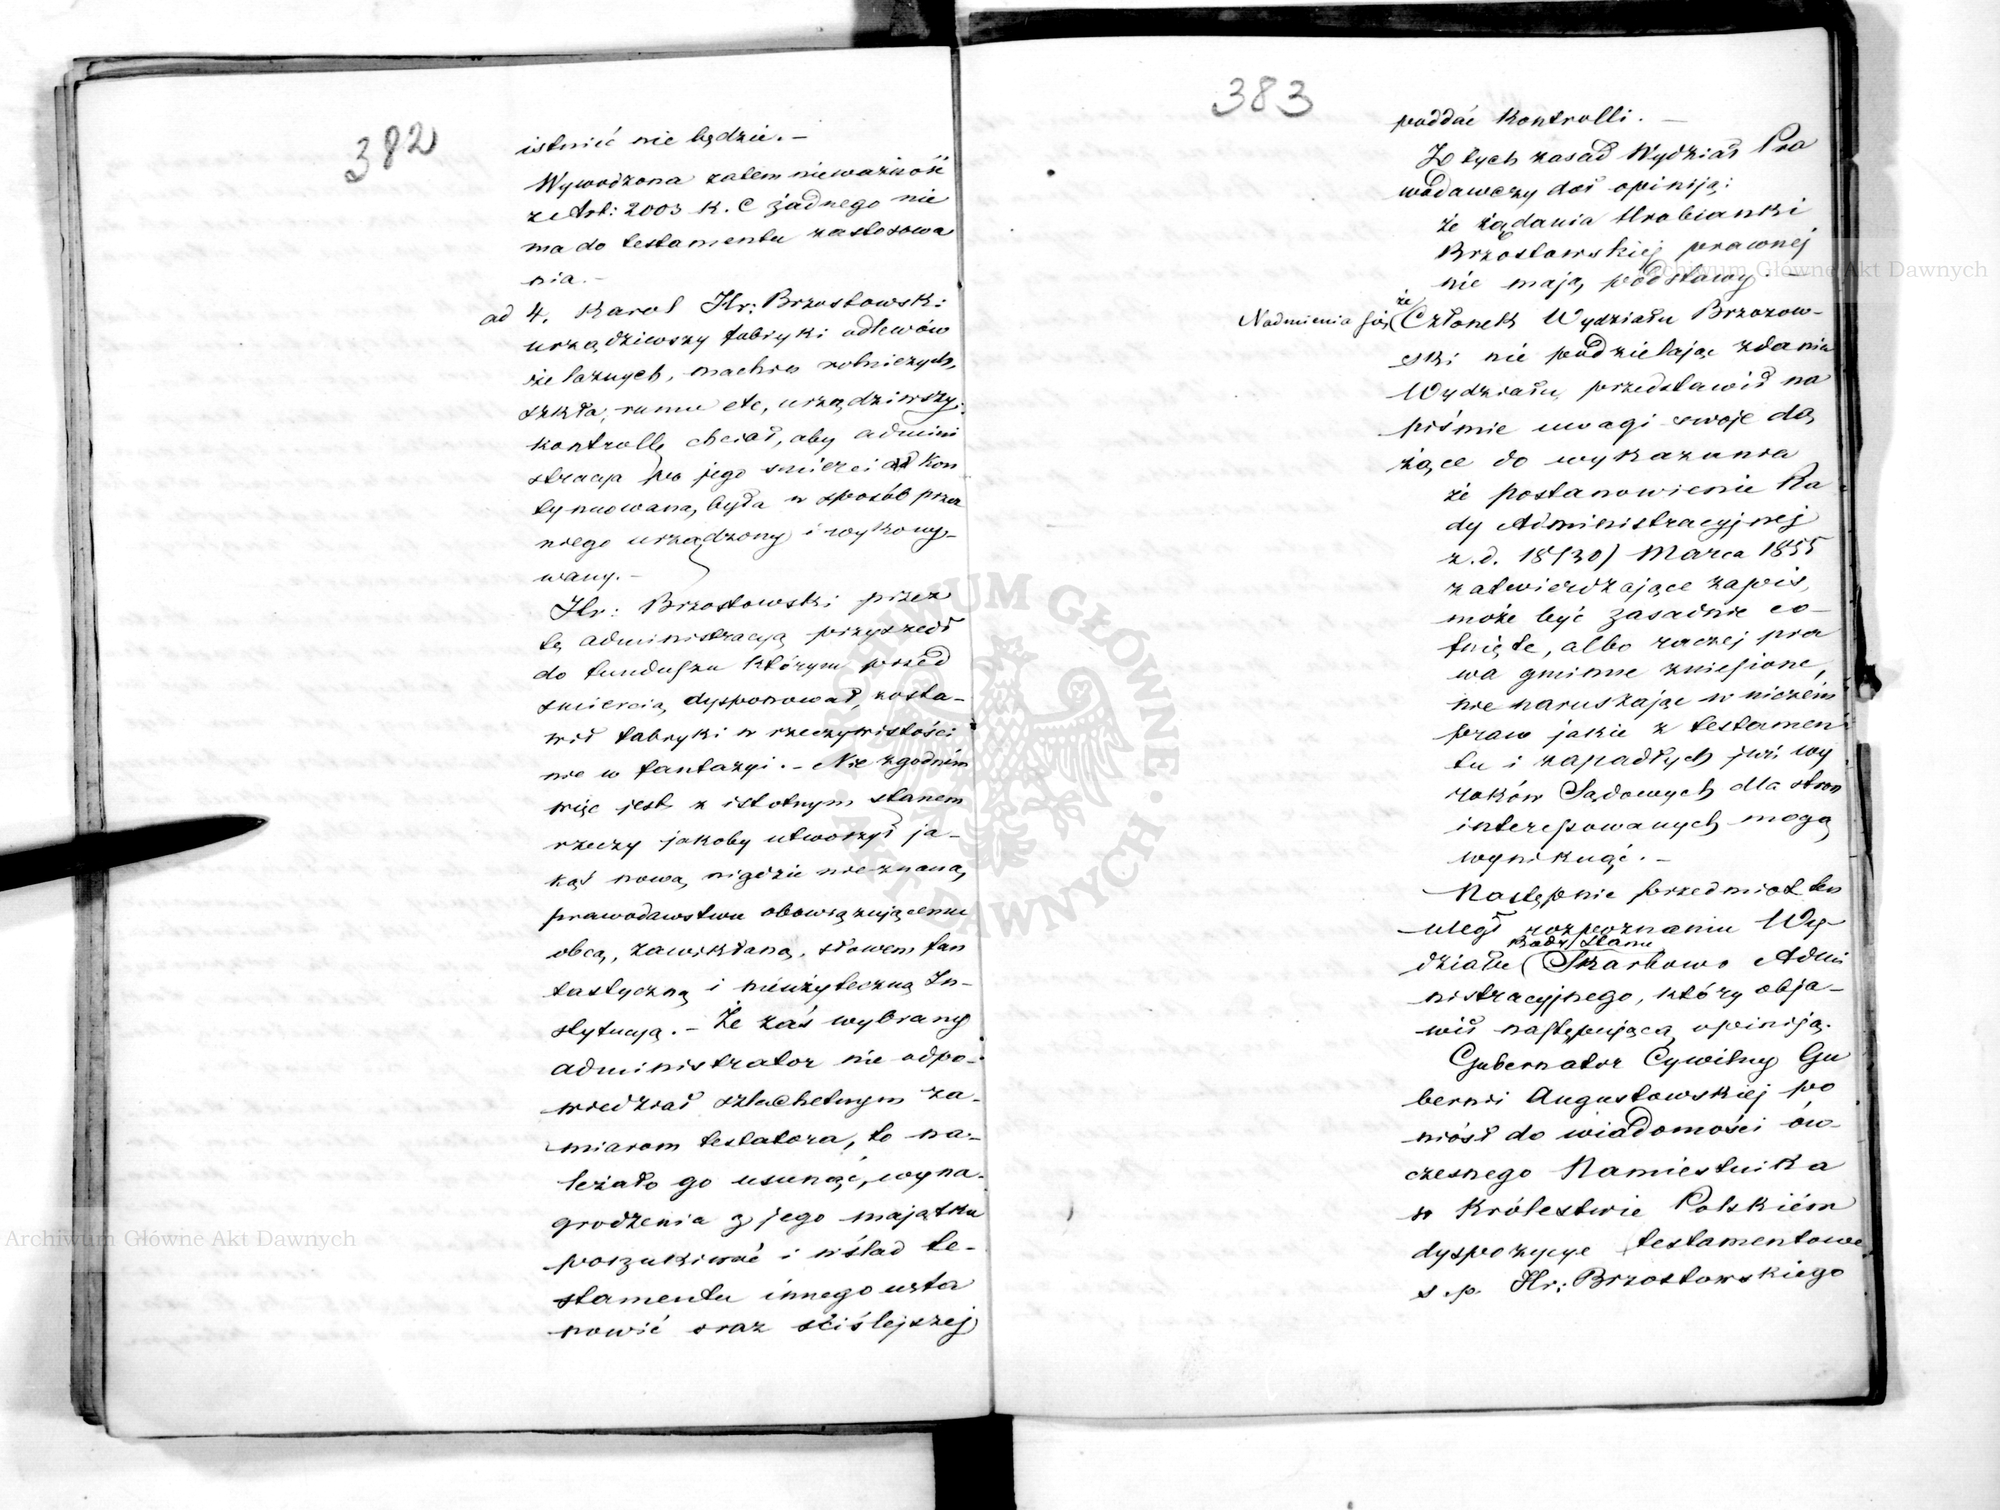 382
istnieć nie będzie. –
Wywodzona zatem nieważność
z Art: 2003 K. C żadnego nie
ma do testamentu zastosowa
nia. –
ad 4. Karol Hr: Brzostowski
urządziwszy fabryki odlewów
żelaznych, machin rolniczych,
szkła, rumu etc, urządziwszy
kontrollę chciał, aby admini
stracja po jego śmierci kon
tynuowana, była w sposób przez
niego urządzony i wykony-
wany. –
Hr: Brzostowski przez
tę administracyą przyszedł
do funduszu którym przed
śmiercią dysponował, zosta-
wił fabryki w rzeczywistości
nie w fantazyi. – Nie zgodném
więc jest z istotnym stanem
rzeczy jakoby utworzył ja-
kąś nową, nigdzie nieznaną,
prawodawstwu obowiązującemu
obcą, zawikłaną, słowem fan
tastyczną i nieużyteczną In-
stytucyą. – Że zaś wybrany
administrator nie odpo-
wiedział szlachetnym za-
miarom testatora, to na-
leżało go usunąć, wyna-
grodzenia z jego majątku
poszukiwać i w ślad te-
stamentu innego usta
nowić oraz ściślejszej
383
poddać kontrolli. –
Z tych zasad Wydział Pra
wodawczy dał opiniją:
że żądania Hrabianki
Brzostowskiéj prawnej
nie mają podstawy. –
Nadmienia się że Członek Wydziału Brzozow-
ski nie podzielając zdania
Wydziału, przedstawił na
piśmie uwagi swoje dą
żące do wykazania
że postanowienie Ra
dy Administracyjnej
z. d. 18/30/ Marca 1855
zatwierdzające zapis,
może być zasadnie co-
fnięte, albo raczej pra
wa gminne zniesione,
nie naruszając w niczém
praw jakie z testamen
tu i zapadłych już wy
roków Sądowych dla stron
interesowanych mogą
wyniknąć. –
Następnie przedmiot ten
uległ rozpoznaniu Wy-
działu Rady Stanu Skarbowo Admi
nistracyjnego, który obja-
wił następującą opiniją.
Gubernator Cywilny Gu
bernii Augustowskiej po
niósł do wiadomości ów-
czesnego Namiestnika
w Królestwie Polskiém
dyspozycye testamentowe
s. p. Hr: Brzostowskiego
Archiwum Główne Akt Dawnych
Archiwum Główne Akt Dawnych
ARCHIWUM GŁÓWNE · AKT DAWNYCH ·